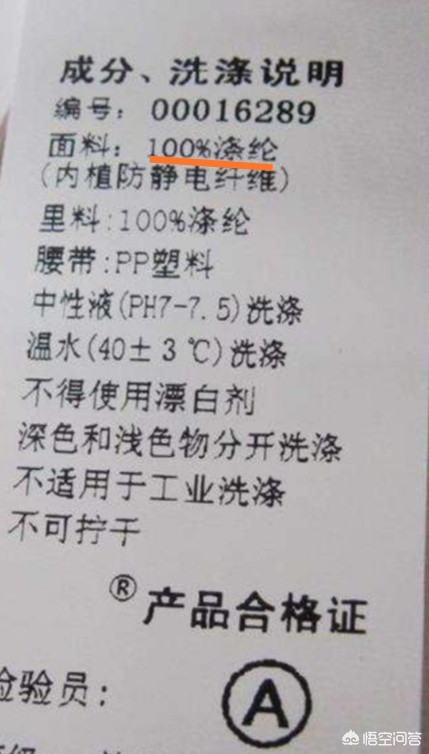 成分、洗涤说明
编号: 00016289
面料: 100%涤纶
(内植防静电纤维)
里料:100%涤纶
腰带:PP塑料
中性液(PH7-7.5)洗涤
温水(40±3℃)洗涤
不得使用漂白剂
深色和浅色物分开洗涤
不适用于工业洗涤
不可拧干
® 产品合格证
检验员: A
悟空问答